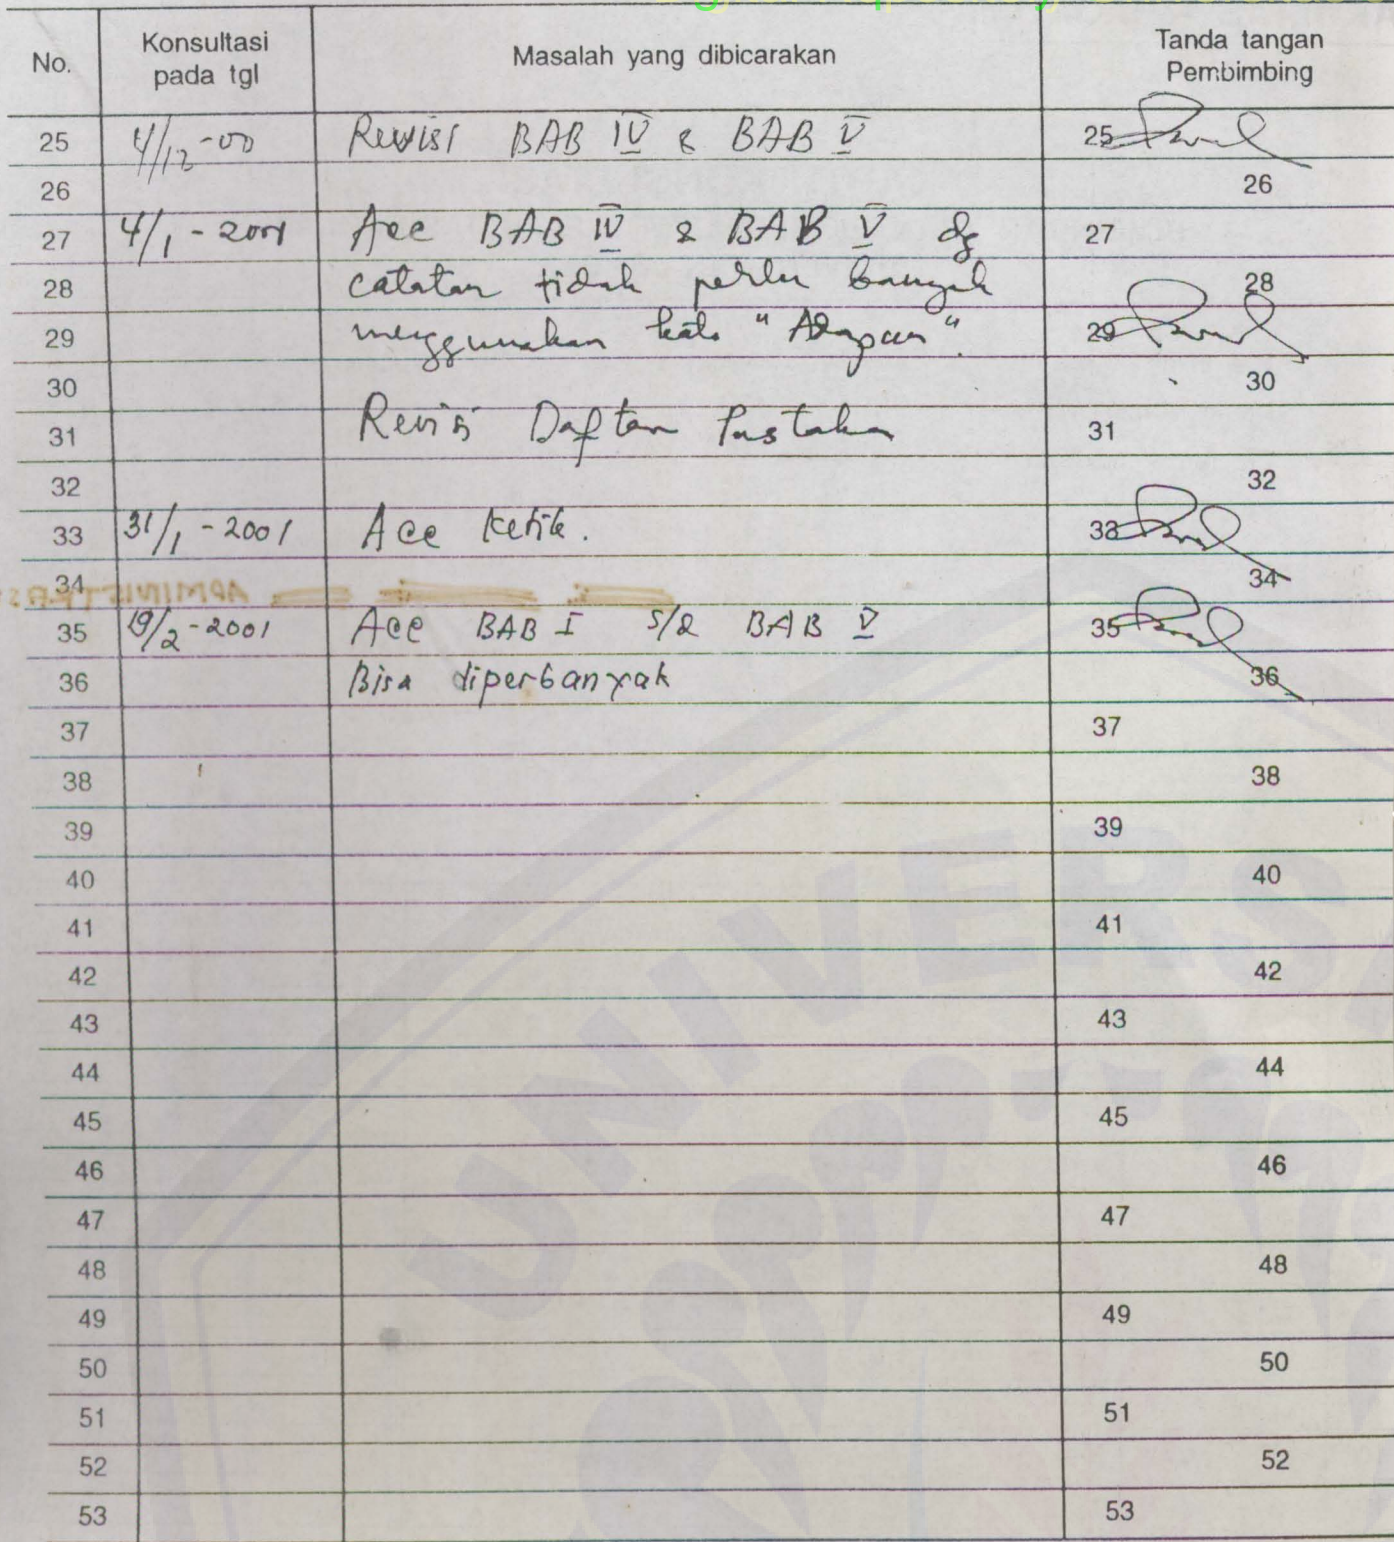 No. Konsultasi pada tgl Masalah yang dibicarakan Tanda tangan Pembimbing
25 4/12-00 Revisi BAB IV & BAB V 25
26 26
27 4/1-2001 Acc BAB IV & BAB V dg 27
28 catatan tidak perlu banyak 28
29 menggunakan kata "Adapun". 29
30 30
31 Revisi Daftar Pustaka 31
32 32
33 31/1-2001 Acc Ketik. 33
34 34
35 19/2-2001 Acc BAB I s/d BAB V 35
36 Bisa diperbanyak 36
37 37
38 38
39 39
40 40
41 41
42 42
43 43
44 44
45 45
46 46
47 47
48 48
49 49
50 50
51 51
52 52
53 53
UNIVERS